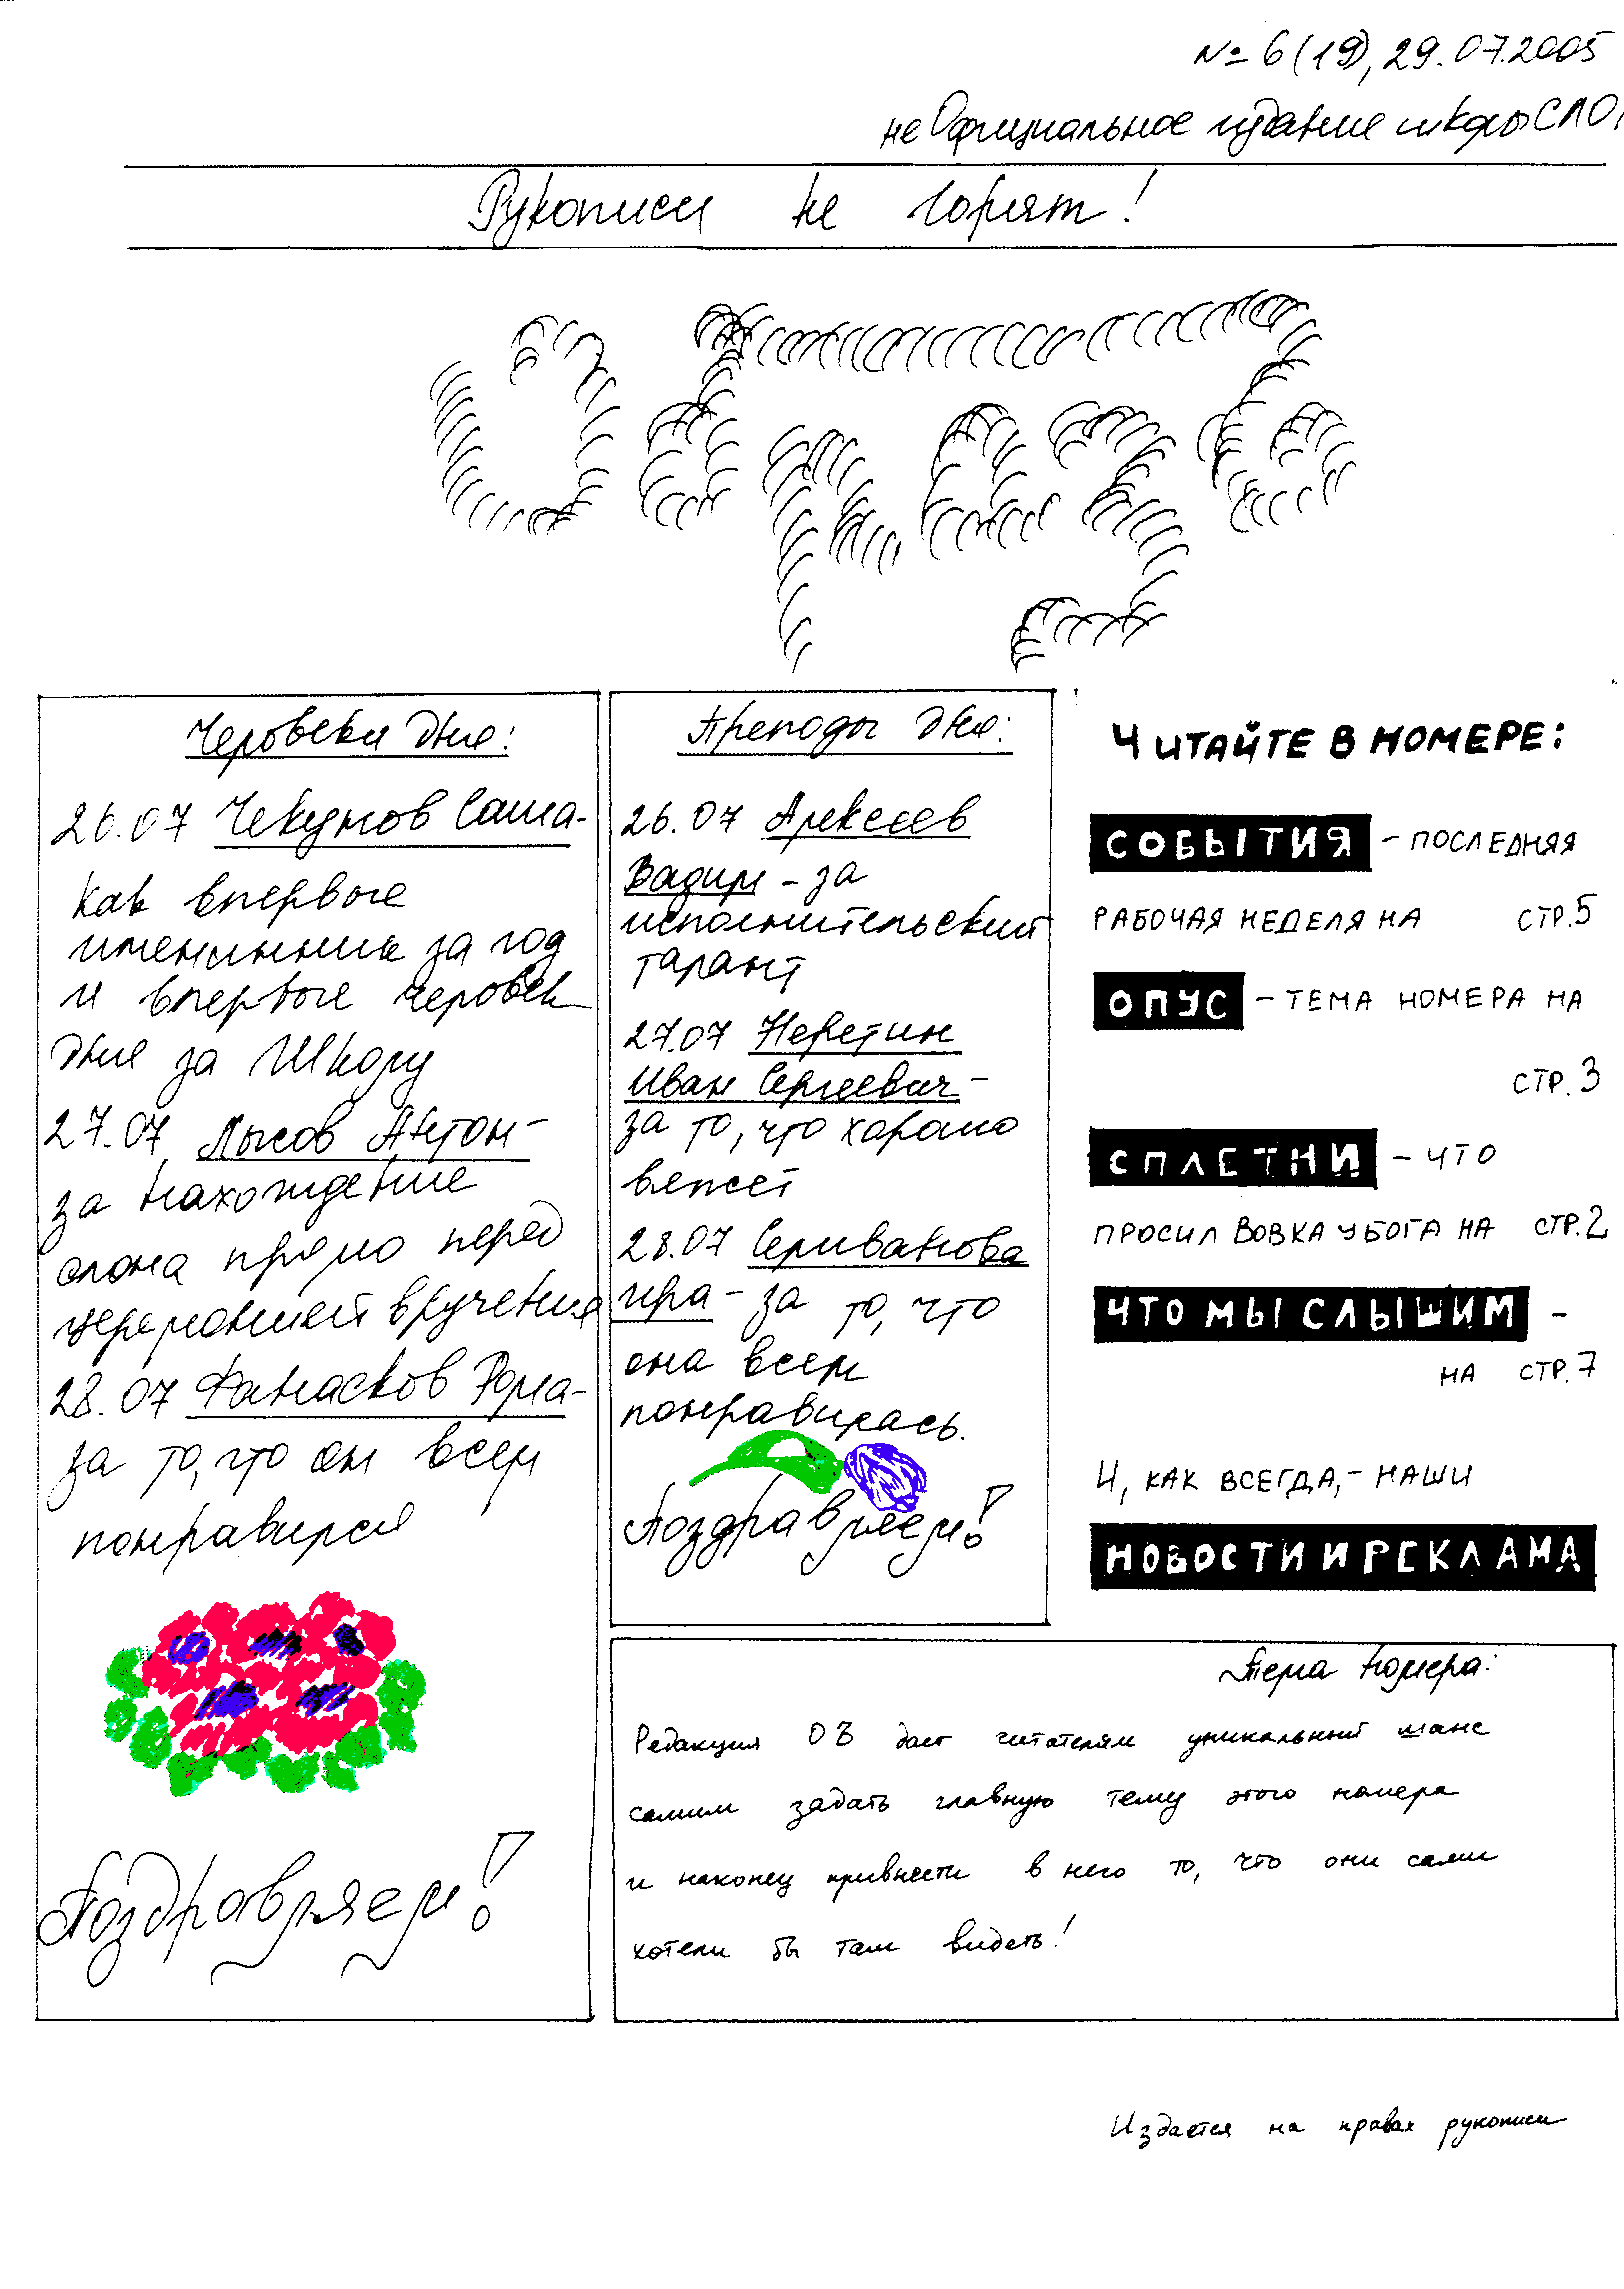 № 6 (19), 29.07.2005
неОфициальное издание школы СЛОН
Рукописи не горят!
Человеки дня:
26.07 Чекунов Саша-
как впервые
именинник за год
и впервые человек
дня за Школу
27.07 Лысов Антон-
за нахождение
слона прямо перед
церемонией вручения
28.07 Фанасков Рома-
за то, что он всем
понравился
Поздравляем!
Преподы дня:
26.07 Алексеев
Вадим - за
исполнительский
талант
27.07 Неретин
Иван Сергеевич -
за то, что хорошо
вяжет
28.07 Селиванова
Ира - за то, что
она всем
понравилась.
Поздравляем!
ЧИТАЙТЕ В НОМЕРЕ:
СОБЫТИЯ - ПОСЛЕДНЯЯ
РАБОЧАЯ НЕДЕЛЯ НА СТР.5
ОПУС - ТЕМА НОМЕРА НА
СТР.3
СПЛЕТНИ - ЧТО
ПРОСИЛ ВОВКА У БОГА НА СТР.2
ЧТО МЫ СЛЫШИМ -
НА СТР.7
И, КАК ВСЕГДА,- НАШИ
НОВОСТИ И РЕКЛАМА
Тема номера:
Редакция ОЪ дает читателям уникальный шанс
самим задать главную тему этого номера
и наконец привнести в него то, что они сами
хотели бы там видеть!
Издается на правах рукописи